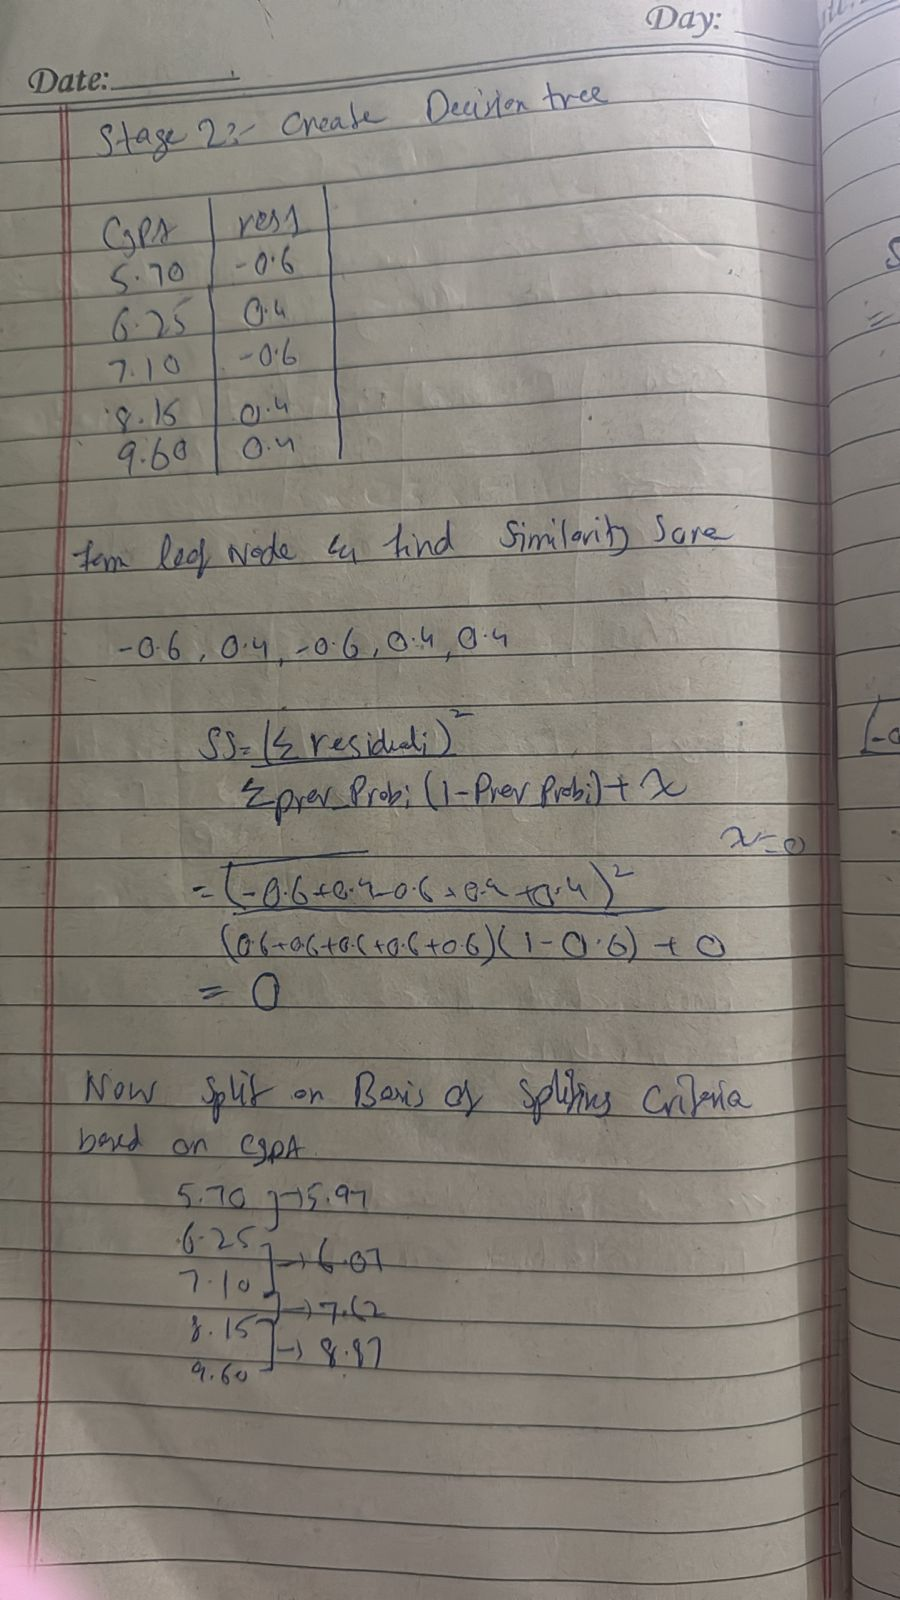 Day:
Date:
Stage 2:- Create Decision tree
CGPA res1
5.70 -0.6
6.25 0.4
7.10 -0.6
8.15 0.4
9.60 0.4
leaf Node & find Similarity Score
-0.6, 0.4, -0.6, 0.4, 0.4
SS = (Σ residuali)²
Σ prev_Probi (1-Prev Probi) + λ
λ=0
= (-0.6+0.4-0.6+0.4+0.4)²
(0.6+0.6+0.6+0.6+0.6)(1-0.6) + 0
= 0
Now Split on Basis of Spliting Criteria
based on CGPA
5.70 → 5.97
6.25
→ 6.07
7.10
→ 7.62
8.15
→ 8.87
9.60